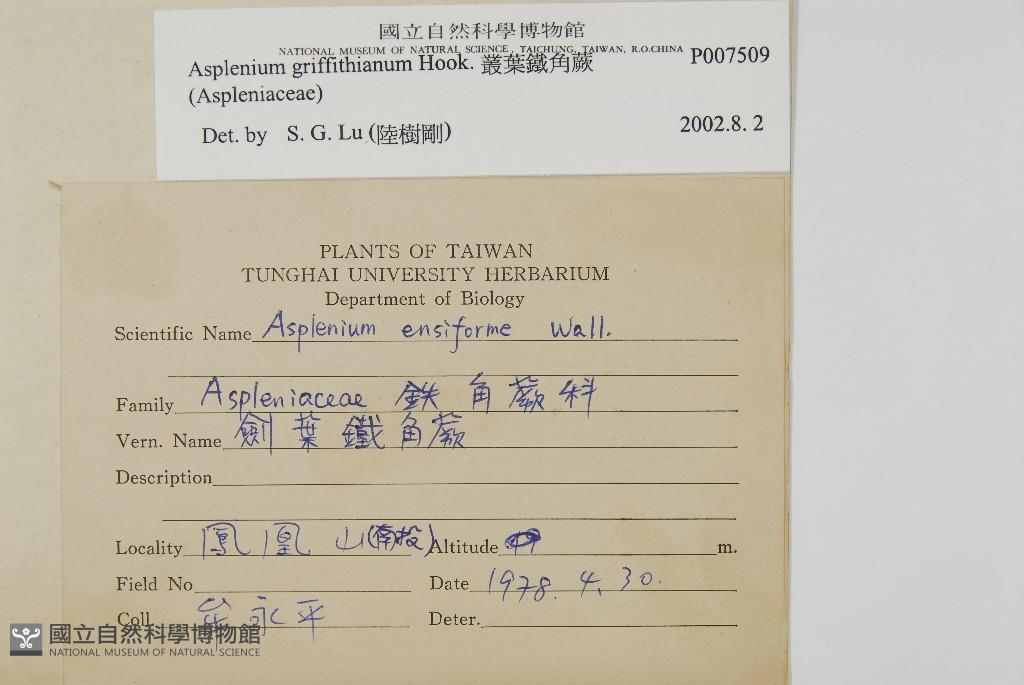 國立自然科學博物館
NATIONAL MUSEUM OF NATURAL SCIENCE, TAICHUNG, TAIWAN, R.O.CHINA
Asplenium griffithianum Hook. 叢葉鐵角蕨 P007509
(Aspleniaceae)
Det. by S. G. Lu (陸樹剛) 2002.8.2
PLANTS OF TAIWAN
TUNGHAI UNIVERSITY HERBARIUM
Department of Biology
Scientific Name Asplenium ensiforme Wall.
Family Aspleniaceae 鉄角蕨科
Vern. Name 劍葉鐵角蕨
Description
Locality 鳳凰山(南投) Altitude m.
Field No Date 1978.4.30.
Coll 牟永平 Deter.
國立自然科學博物館
NATIONAL MUSEUM OF NATURAL SCIENCE